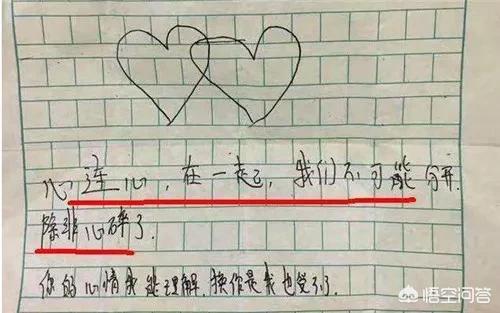 心连心，在一起，我们不可能分开.
除非心碎了.
你的心情我能理解.换你是我也觉
悟空问答